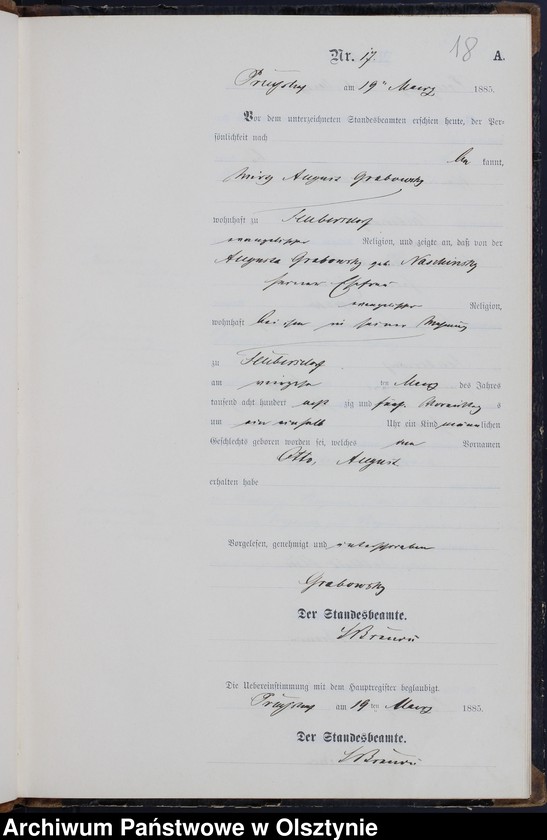 18
Nr. 17. A.
am 19ten Maerz 1885.
Vor dem unterzeichneten Standesbeamten erschien heute, der Per-
sönlichkeit nach
be kannt,
August Grabowsky
wohnhaft zu
evangelischer Religion, und zeigte an, daß von der
Augusta Grabowsky geb. Naschinsky
seiner Ehefrau
evangelischer Religion,
wohnhaft bei ihm in seiner Wohnung
zu
am ten Maerz des Jahres
tausend acht hundert acht zig und fünf, Vormittags
um ein einhalb Uhr ein Kind männlichen
Geschlechts geboren worden sei, welches den Vornamen
Otto, August
erhalten habe
Vorgelesen, genehmigt und unterschrieben
Grabowsky
Der Standesbeamte.
Die Uebereinstimmung mit dem Hauptregister beglaubigt.
am 19ten Maerz 1885.
Der Standesbeamte.
Archiwum Państwowe w Olsztynie